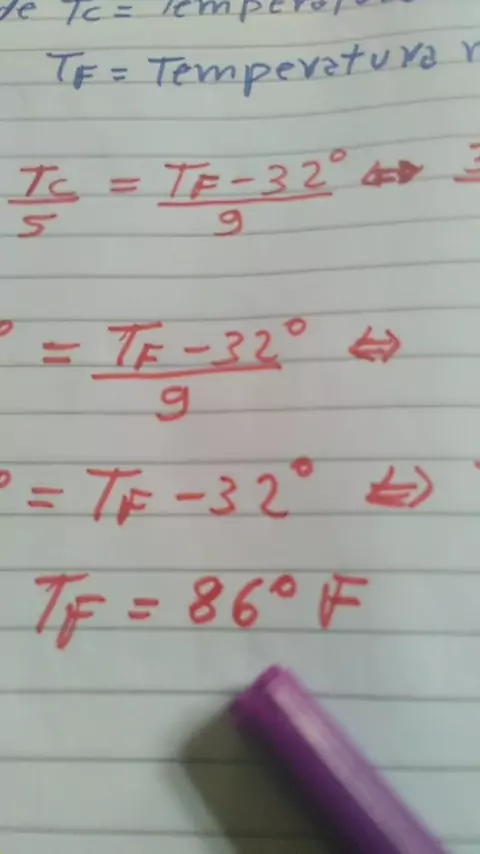 de Tc = Temperatura
TF = Temperatura
Tc/5 = TF - 32°/9 ⇔ 3
° = TF - 32°/9 ⇔
° = TF - 32° ⇔
TF = 86° F